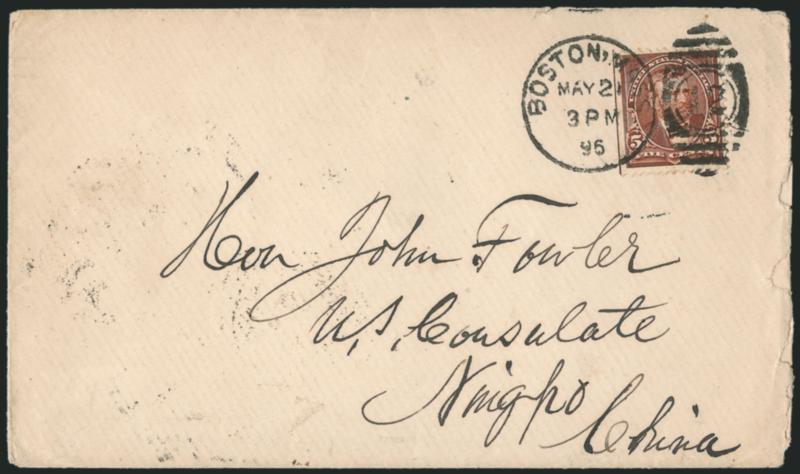 BOSTON, M
MAY 21
3 PM
96
Hon John Fowler
U.S. Consulate
Ningpo
China